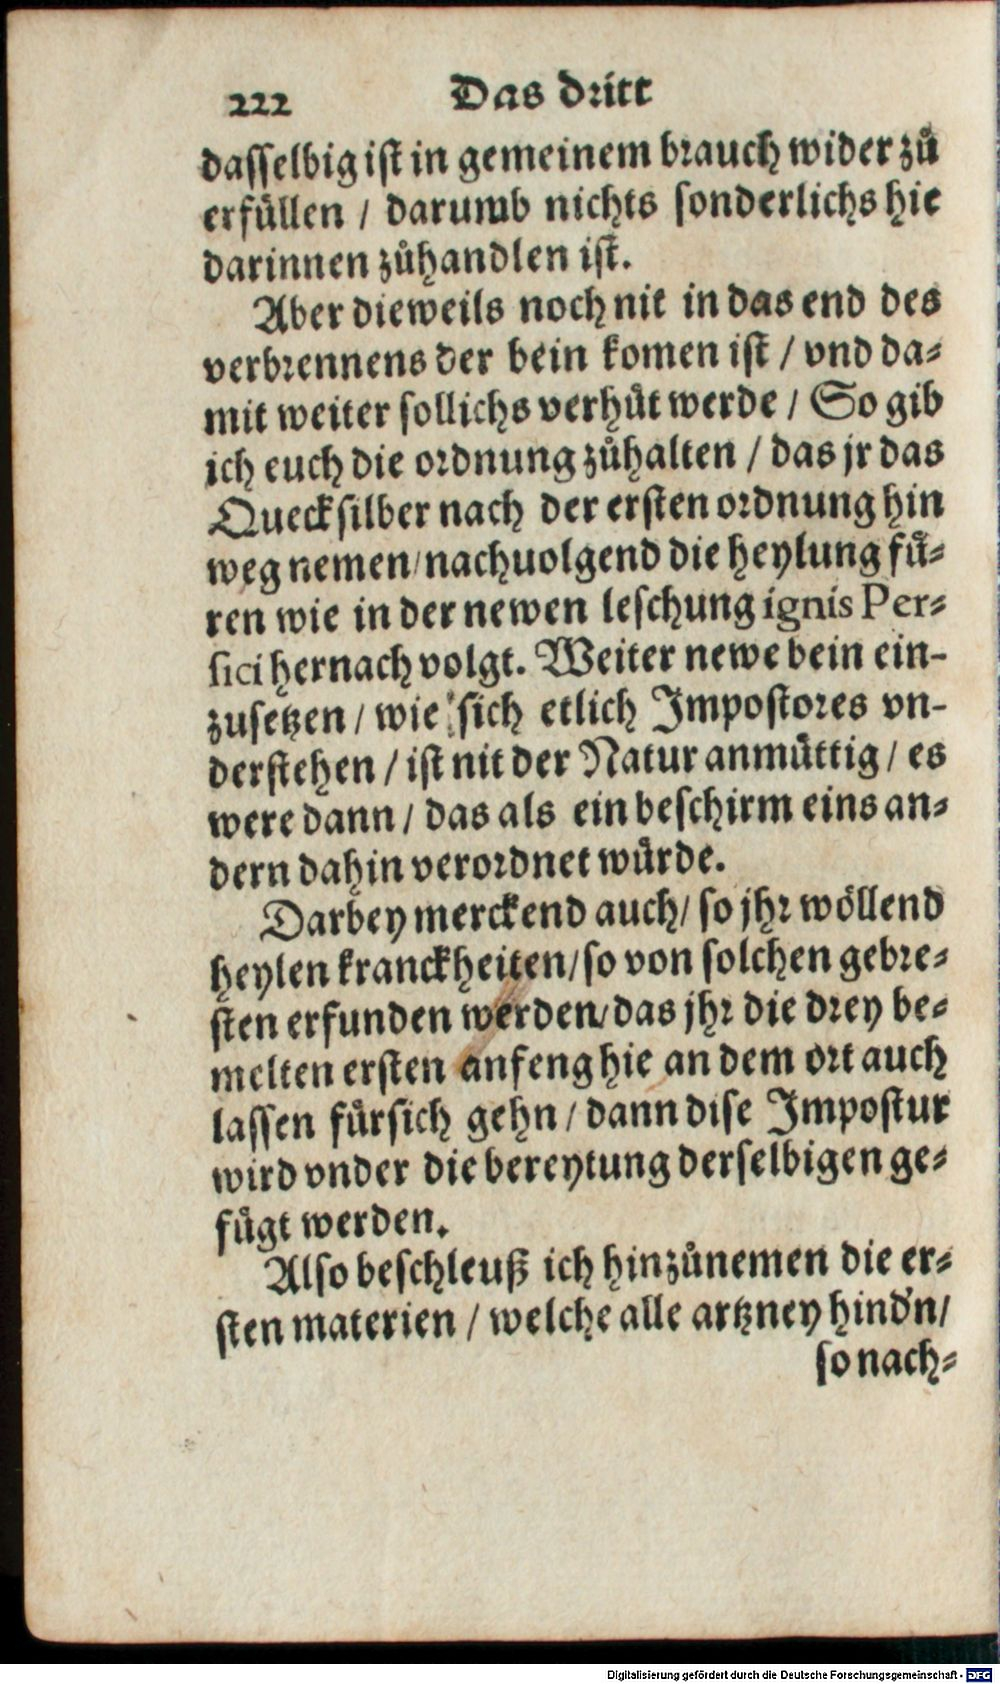 222 Das dritt
dasselbig ist in gemeinem brauch wider zů
erfüllen / darumb nichts sonderlichs hie
darinnen zůhandlen ist.
Aber dieweils noch nit in das end des
verbrennens der bein komen ist / vnd da-
mit weiter sollichs verhüt werde / So gib
ich euch die ordnung zůhalten / das jr das
Quecksilber nach der ersten ordnung hin
weg nemen / nachuolgend die heylung fü-
ren wie in der newen leschung ignis Per-
sici hernach volgt. Weiter newe bein ein-
zusetzen / wie sich etlich Impostores vn-
derstehen / ist nit der Natur anmüttig / es
were dann / das als ein beschirm eins an-
dern dahin verordnet würde.
Darbey merckend auch / so jhr wöllend
heylen kranckheiten / so von solchen gebre-
sten erfunden werden / das jhr die drey be-
melten ersten anfeng hie an dem ort auch
lassen fürsich gehn / dann dise Impostur
wird vnder die bereytung derselbigen ge-
fügt werden.
Also beschleuß ich hinzůnemen die er-
sten materien / welche alle artzney hind'n /
so nach-
Digitalisierung gefördert durch die Deutsche Forschungsgemeinschaft - DFG